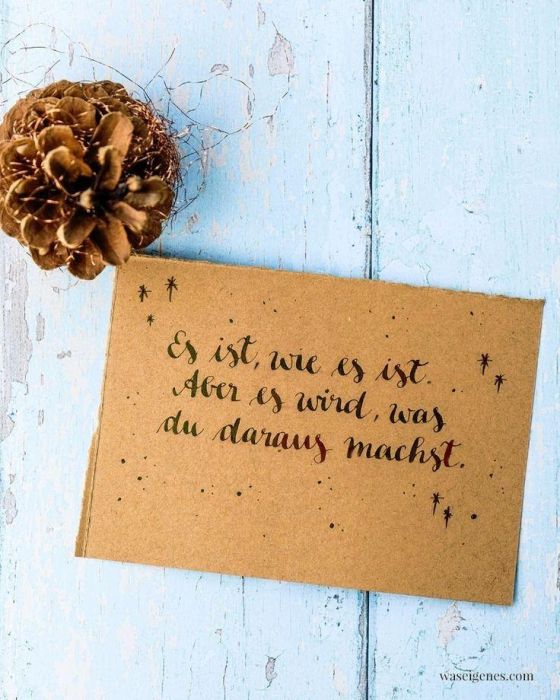 Es ist, wie es ist.
Aber es wird, was
du daraus machst.
waseigenes.com